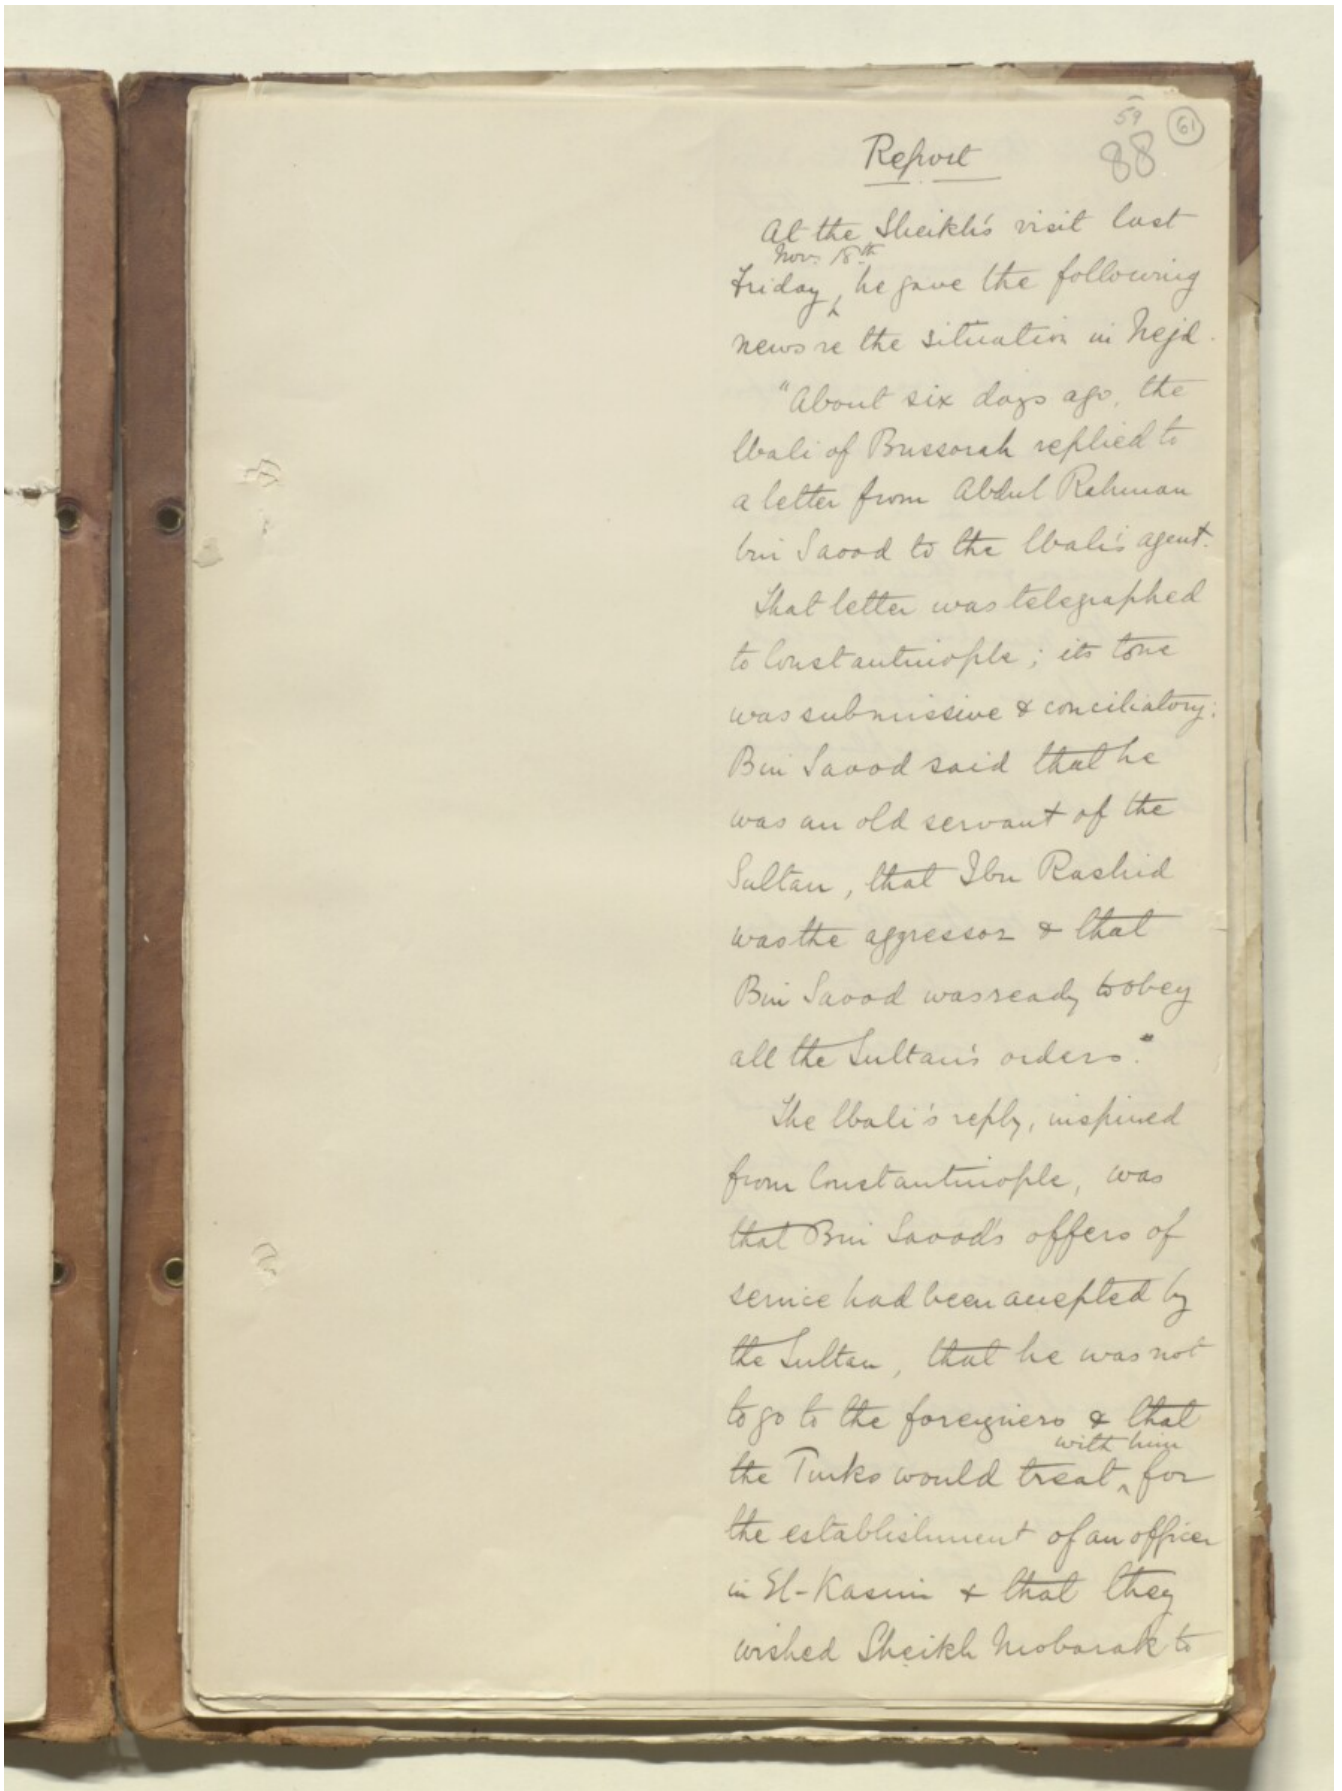 59
61
88
Report
At the Sheikh's visit last
Nov. 18th
Friday, he gave the following
news re the situation in Nejd.
"About six days ago, the
Wali of Bussorah replied to
a letter from Abdul Rahman
bin Saood to the Wali's agent.
That letter was telegraphed
to Constantinople; its tone
was submissive & conciliatory:
Bin Saood said that he
was an old servant of the
Sultan, that Ibn Rashid
was the aggressor & that
Bin Saood was ready to obey
all the Sultan's orders."
The Wali's reply, inspired
from Constantinople, was
that Bin Saood's offers of
service had been accepted by
the Sultan, that he was not
to go to the foreigners & that
with him
the Turks would treat for
the establishment of an officer
in El-Kasim & that they
wished Sheikh Mobarak to